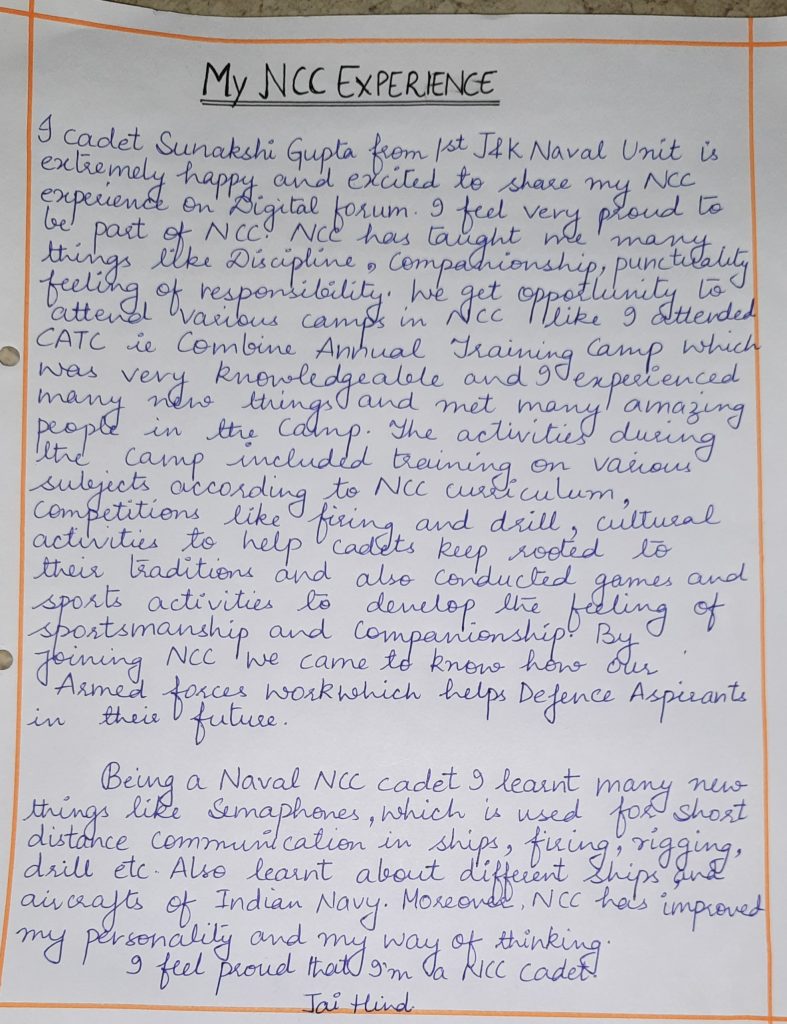 MY NCC EXPERIENCE
I cadet Sunakshi Gupta from 1st J&K Naval Unit is
extremely happy and excited to share my NCC
experience on Digital forum. I feel very proud to
be part of NCC. NCC has taught me many
things like Discipline, Companionship, punctuality
feeling of responsibility. We get opportunity to
attend various camps in NCC like I attended
CATC ie Combine Annual Training Camp which
was very knowledgeable and I experienced
many new things and met many amazing
people in the Camp. The activities during
the camp included training on various
subjects according to NCC curriculum,
competitions like firing and drill, cultural
activities to help cadets keep rooted to
their traditions and also conducted games and
sports activities to develop the feeling of
sportsmanship and companionship. By
joining NCC we came to know how our
Armed forces work which helps Defence Aspirants
in their future.
Being a Naval NCC cadet I learnt many new
things like Semaphones, which is used for short
distance communication in ships, firing, rigging,
drill etc. Also learnt about different ships and
aircrafts of Indian Navy. Moreover, NCC has improved
my personality and my way of thinking.
I feel proud that I'm a NCC cadet.
Jai Hind.